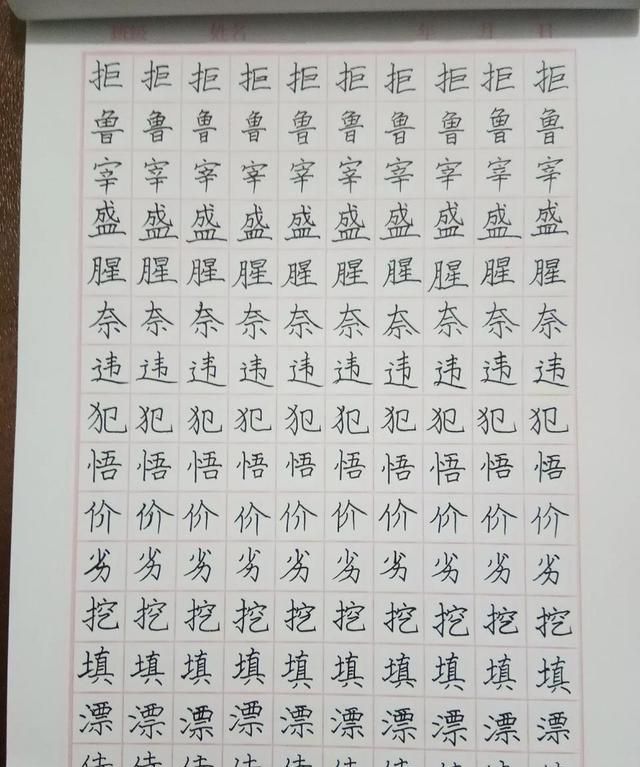 班级 姓名 年 月 日
拒 拒 拒 拒 拒 拒 拒 拒 拒 拒
鲁 鲁 鲁 鲁 鲁 鲁 鲁 鲁 鲁 鲁
宰 宰 宰 宰 宰 宰 宰 宰 宰 宰
盛 盛 盛 盛 盛 盛 盛 盛 盛 盛
腥 腥 腥 腥 腥 腥 腥 腥 腥 腥
奈 奈 奈 奈 奈 奈 奈 奈 奈 奈
违 违 违 违 违 违 违 违 违 违
犯 犯 犯 犯 犯 犯 犯 犯 犯 犯
悟 悟 悟 悟 悟 悟 悟 悟 悟 悟
价 价 价 价 价 价 价 价 价 价
劣 劣 劣 劣 劣 劣 劣 劣 劣 劣
挖 挖 挖 挖 挖 挖 挖 挖 挖 挖
填 填 填 填 填 填 填 填 填 填
漂 漂 漂 漂 漂 漂 漂 漂 漂 漂